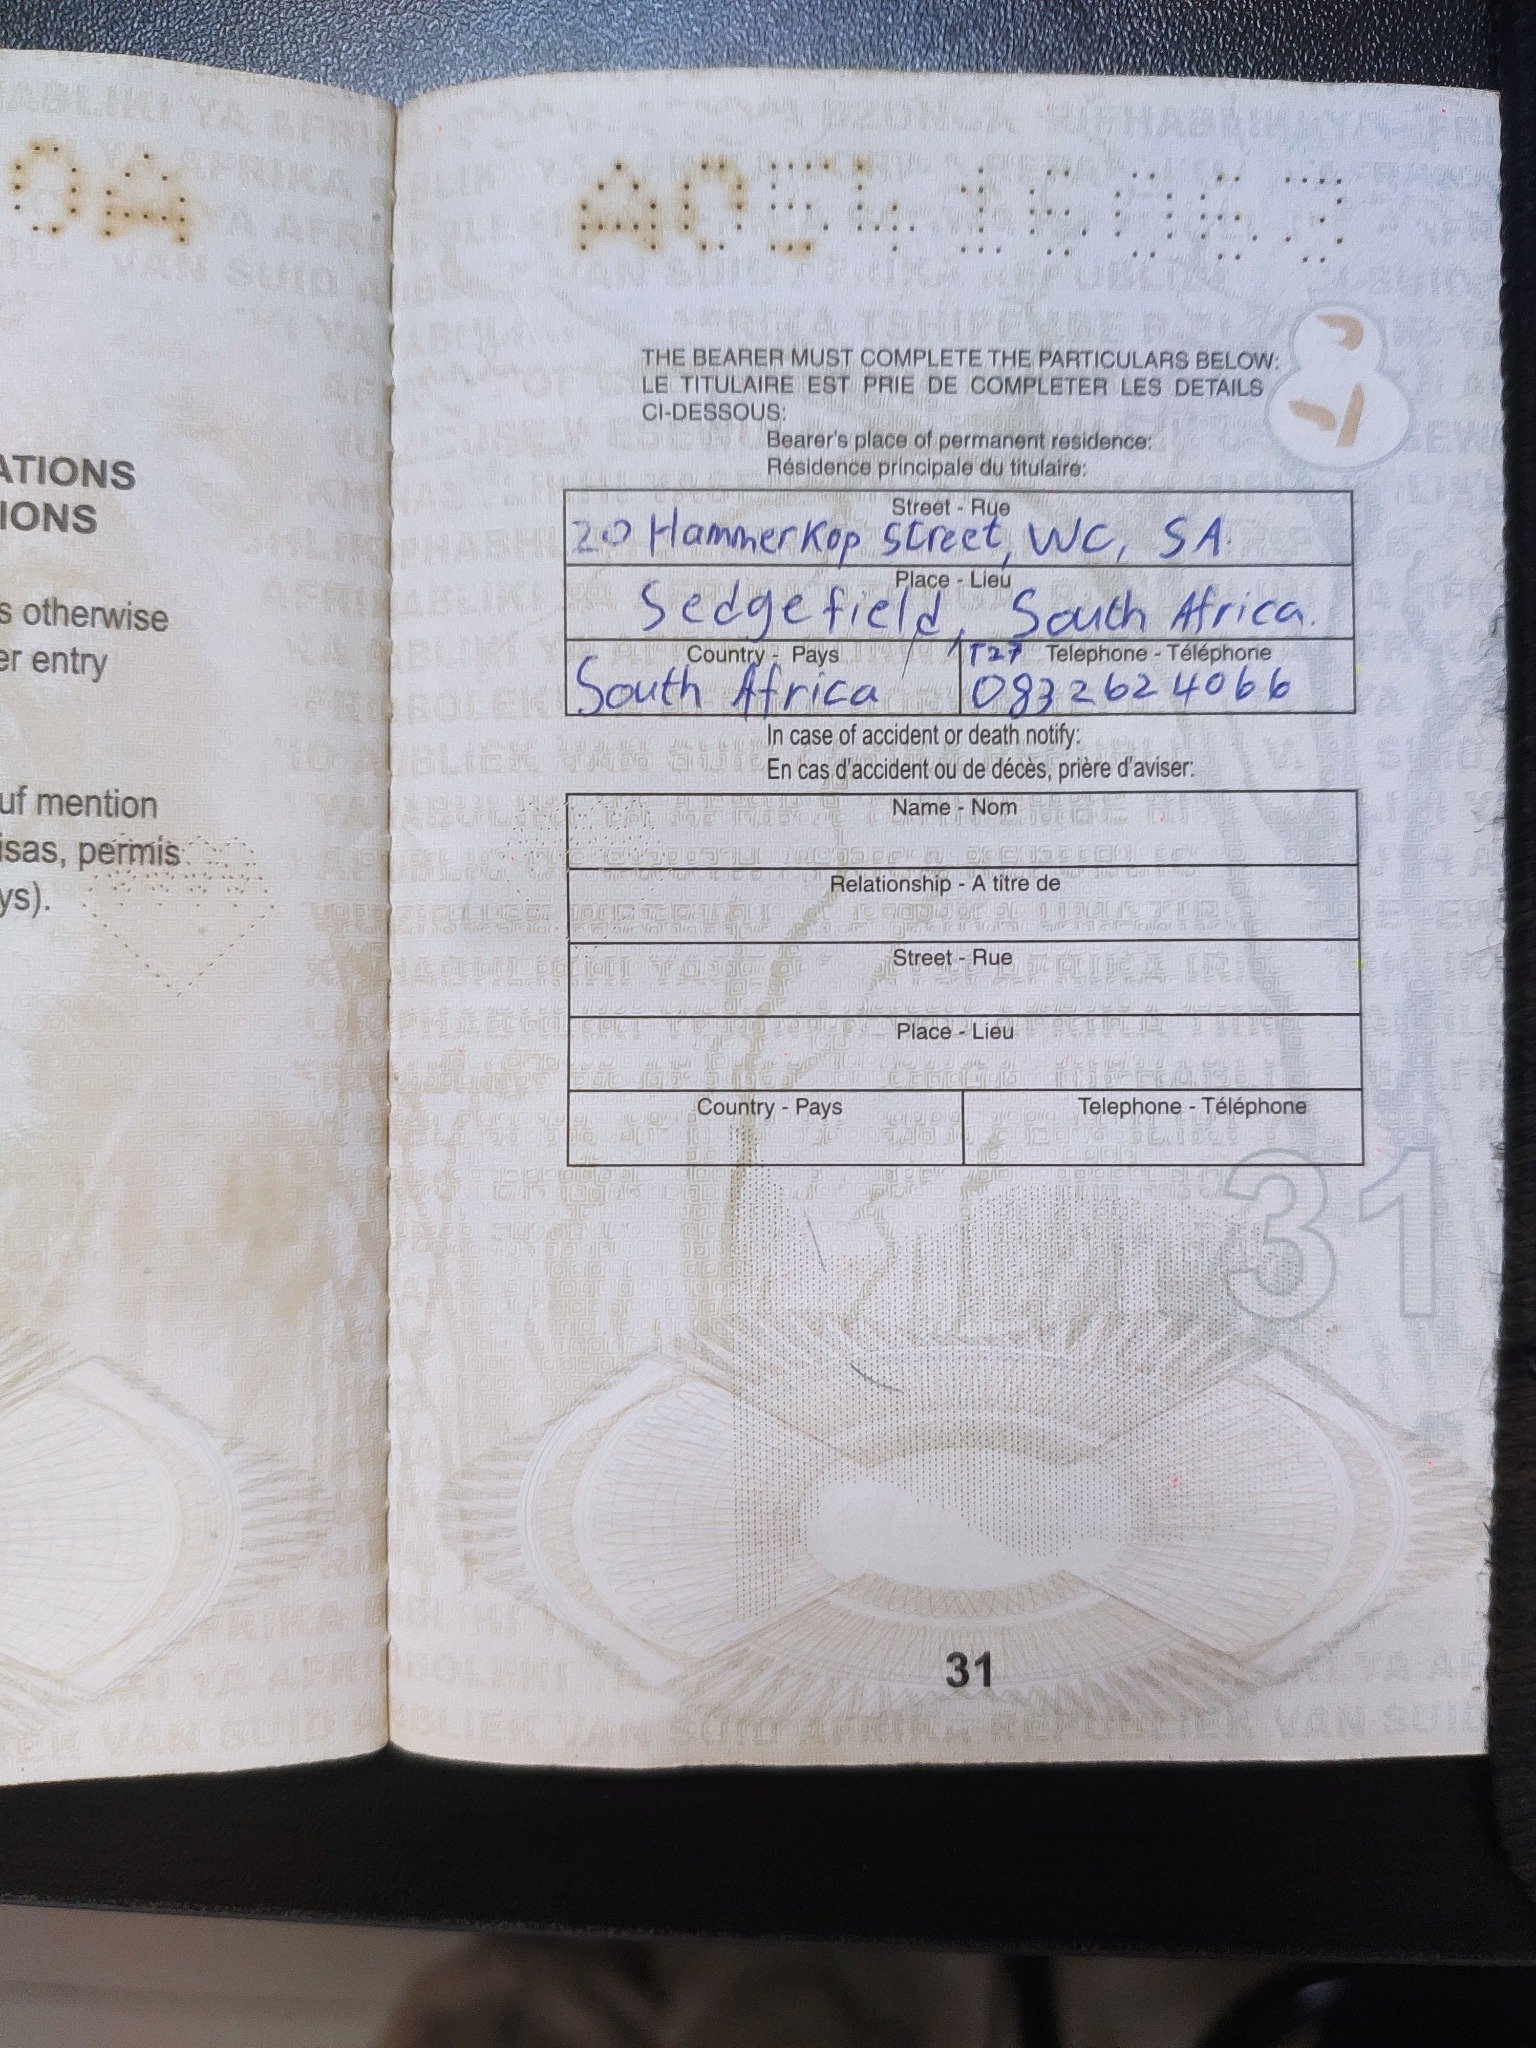 ATIONS
IONS
s otherwise
er entry
uf mention
isas, permis
ys).
THE BEARER MUST COMPLETE THE PARTICULARS BELOW:
LE TITULAIRE EST PRIE DE COMPLETER LES DETAILS
CI-DESSOUS:
Bearer's place of permanent residence:
Résidence principale du titulaire:
Street - Rue
20 Hammerkop Street, WC, SA.
Place - Lieu
Sedgefield, South Africa.
Country - Pays
South Africa
Telephone - Téléphone
0832624066
In case of accident or death notify:
En cas d'accident ou de décès, prière d'aviser:
Name - Nom
Relationship - A titre de
Street - Rue
Place - Lieu
Country - Pays
Telephone - Téléphone
31
31